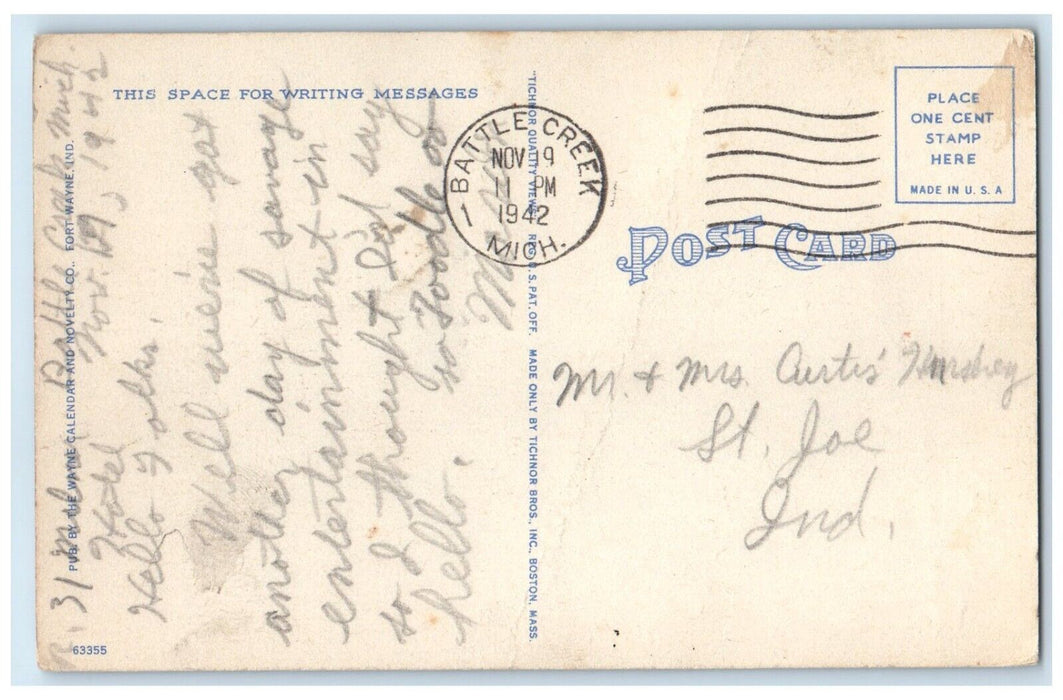 THIS SPACE FOR WRITING MESSAGES
Battle Creek Mich.
Nov. 19, 1942
Hotel
Hello Folks.
Well we've got
another day of savage
entertainment in
so I thought I'd say
hello. so Toodle oo
PUB. BY THE WAYNE CALENDAR AND NOVELTY CO., FORT WAYNE, IND.
63355
"TICHNOR QUALITY VIEWS," REG. U. S. PAT. OFF. MADE ONLY BY TICHNOR BROS., INC., BOSTON, MASS.
BATTLE CREEK
NOV 19
11 PM
1942
MICH.
1
PLACE
ONE CENT
STAMP
HERE
MADE IN U. S. A
POST CARD
Mr. & Mrs. Curtis Hershey
St. Joe
Ind.